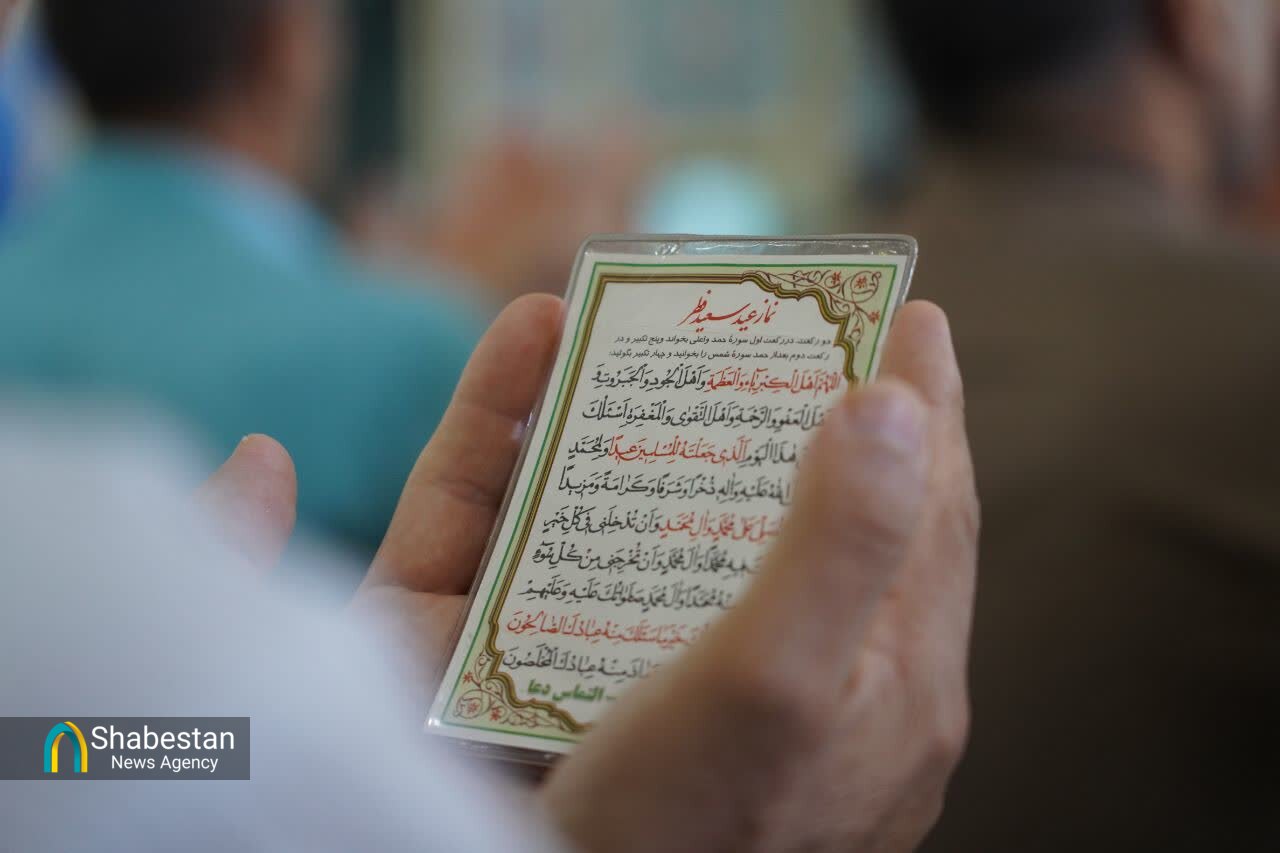 نماز عید سعید فطر
دو رکعت. در رکعت اول سورهٔ حمد و اعلی بخواند و پنج تکبیر و در
رکعت دوم بعداز حمد سورهٔ شمس را بخوانید و چهار تکبیر بگوئید:
اَللّٰهُمَّ اَهْلَ الْكِبْرِیٰاءِ وَالْعَظَمَةِ وَاَهْلَ الْجُودِ وَالْجَبَرُوتِ وَ
اَهْلَ الْعَفْوِ وَالرَّحْمَةِ وَاَهْلَ التَّقْوٰى وَالْمَغْفِرَةِ اَسْئَلُكَ
هٰذَا الْیَوْمِ الَّذی جَعَلْتَهُ لِلْمُسْلِمینَ عیدًا وَلِمُحَمَّدٍ
اللهُ عَلَیْهِ وَالِهِ ذُخْرًا وَشَرَفًا وَكَرٰامَةً وَمَزیدًا
عَلٰى مُحَمَّدٍ وَالِ مُحَمَّدٍ وَاَنْ تُدْخِلَنی فی كُلِّ خَیْرٍ
فیهِ مُحَمَّدًا وَالَ مُحَمَّدٍ وَاَنْ تُخْرِجَنی مِنْ كُلِّ سُوۤءٍ
مُحَمَّدًا وَالَ مُحَمَّدٍ صَلَوٰاتُكَ عَلَیْهِ وَعَلَیْهِمْ
خَیْرَ مٰا سَئَلَكَ مِنْهُ عِبٰادُكَ الصّٰالِحُونَ
مِنْهُ عِبٰادُكَ الْمُخْلَصُونَ
- التماس دعا
Shabestan
News Agency